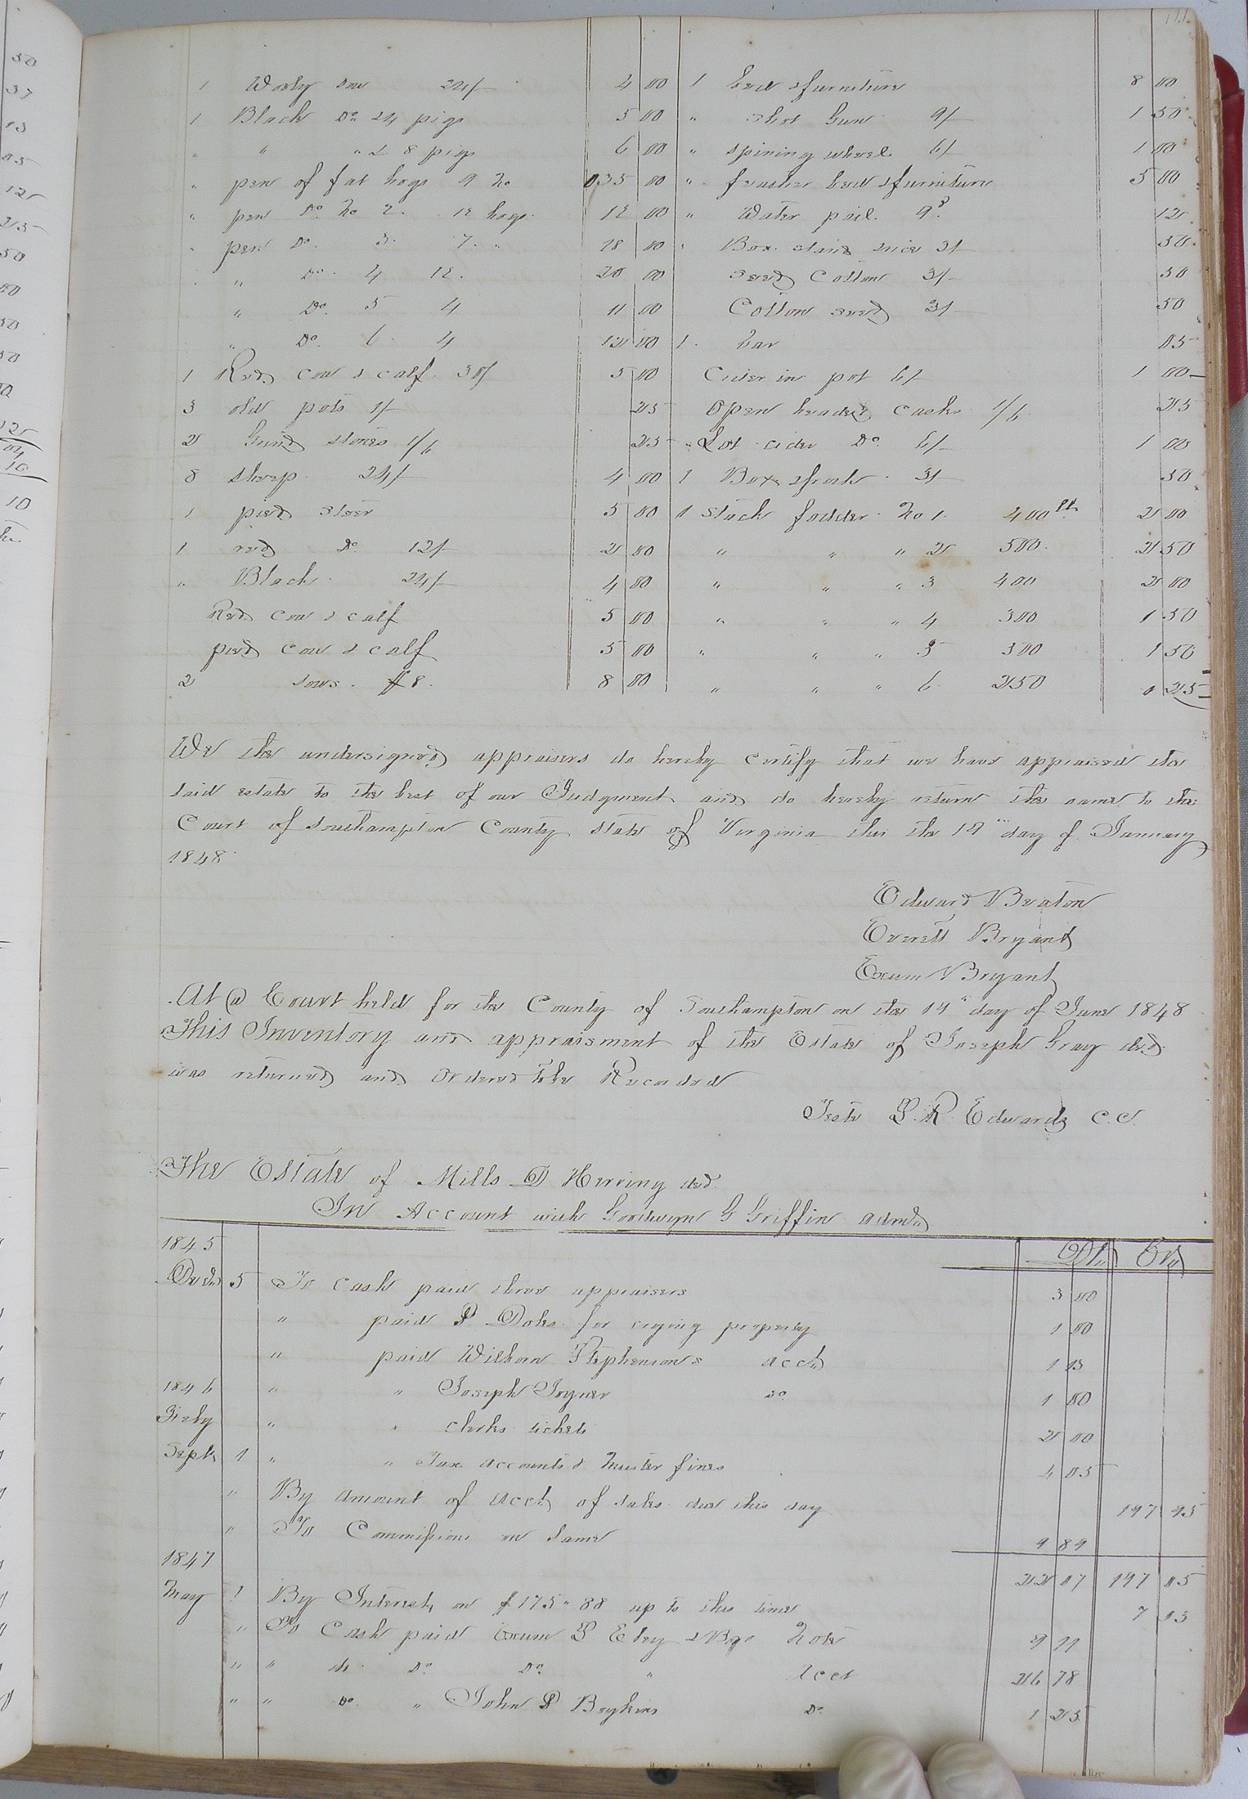 1 Wooly sow 24/ 4 00
1 Black Do 24 pigs 5 00
" " " & 8 pigs 6 00
" pen of fat hogs 9 No 35 00
" pen Do No 2. 12 hogs 12 00
" pen Do. 3. 7. " 18 00
" Do. 4 12. 20 00
" Do. 5 4 11 00
" Do. 6 4 12 00
1 Red cow & calf 30/ 5 00
3 old pots 1/ 25
2 Grind stones 1/6 25
8 sheep 24/ 4 00
1 pied steer 5 00
1 red Do 12/ 2 00
" Black 24/ 4 00
Red cow & calf 5 00
pied cow & calf 5 00
2 sows. $8. 8 00
1 bed & furniture 8 00
" Shot Gun 9/ 1 50
" spining wheel 6/ 1 00
" feather bed & furniture 5 00
" Water pail. 9d. 12
" Box 3/ 50
seed Cotton 3/ 50
Cotton seed 3/ 50
1. 05
Cider in pot 6/ 1 00
Open headed casks 1/6 25
" Lot cider Do. 6/ 1 00
1 Box 3/ 50
1 Stack fodder No 1. 400 lb 2 00
" " " 2 500. 2 50
" " " 3 400 2 00
" " " 4 300 1 50
" " " 5 300 1 50
" " " 6 250 1 25
We the undersigned appraisers do hereby certify that we have appraised the
said estate to the best of our Judgment and do hereby return the same to the
Court of Southampton County State of Virginia this the 19th day of January
1848
Edward Beaton
Everett Bryant
Exum Bryant
At a Court held for the County of Southampton on the 19th day of June 1848
This Inventory and appraisment of the Estate of Joseph Gray decd
was returned and Ordered to be Recorded
Teste L. R. Edwards C.C.
The Estate of Mills D Herring decd
In Account with Goodwyn G Griffin admr
1845 Dr Cr
Decr 5 To cash paid three appraisers 3 00
" paid for crying property 1 00
" paid Wilborn Stephenson's acct 1 13
1846 " " Joseph Joyner do 1 80
Feby " " clerks tickets 2 00
Sept 1 " " Tax accounts & Muster fines 4 05
" By Amount of acct of sales due this day 197 95
" To Commissions on same 9 89
1847 22 07 197 95
May 1 By Interest on $175.88 up to this time 7 03
" To Cash paid Exum Eley & Bro Note 9 99
" " do Do Do " Acct 26 78
" " Do " John Boykins Do 1 25